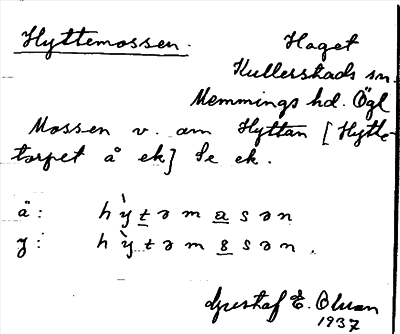 Hyttemossen. Haget
Kullerstads sn.
Memmings hd. Ögl
Mossen v. om Hyttan [Hytte-
torpet å ek] Se ek.
ä: hỳt̲əma̲sən
y: hỳtəm8̲sən.
Gustaf E. Olsson
1937